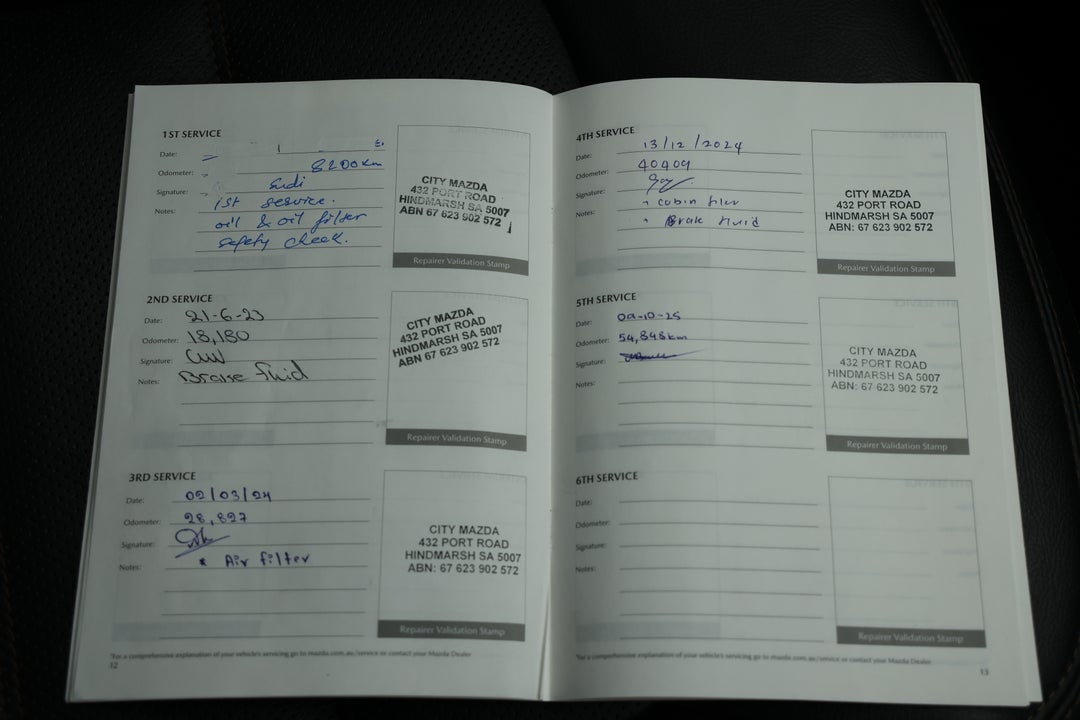 1ST SERVICE
Date:
Odometer: 8200km
Signature: Sudi
Notes: 1st service.
oil & oil filter
safety check.
CITY MAZDA
432 PORT ROAD
HINDMARSH SA 5007
ABN 67 623 902 572
Repairer Validation Stamp
2ND SERVICE
Date: 21-6-23
Odometer: 18,180
Signature:
Notes: Brake fluid
CITY MAZDA
432 PORT ROAD
HINDMARSH SA 5007
ABN 67 623 902 572
Repairer Validation Stamp
3RD SERVICE
Date: 02/03/24
Odometer: 28,827
Signature:
Notes: * Air filter
CITY MAZDA
432 PORT ROAD
HINDMARSH SA 5007
ABN: 67 623 902 572
Repairer Validation Stamp
*For a comprehensive explanation of your vehicle's servicing go to mazda.com.au/service or contact your Mazda Dealer
12
4TH SERVICE
Date: 13/12/2024
Odometer: 40409
Signature:
Notes: - cabin filer
- Brak fluid
CITY MAZDA
432 PORT ROAD
HINDMARSH SA 5007
ABN: 67 623 902 572
Repairer Validation Stamp
5TH SERVICE
Date: 09-10-25
Odometer: 54,848km
Signature:
Notes:
CITY MAZDA
432 PORT ROAD
HINDMARSH SA 5007
ABN: 67 623 902 572
Repairer Validation Stamp
6TH SERVICE
Date:
Odometer:
Signature:
Notes:
Repairer Validation Stamp
*For a comprehensive explanation of your vehicle's servicing go to mazda.com.au/service or contact your Mazda Dealer
13